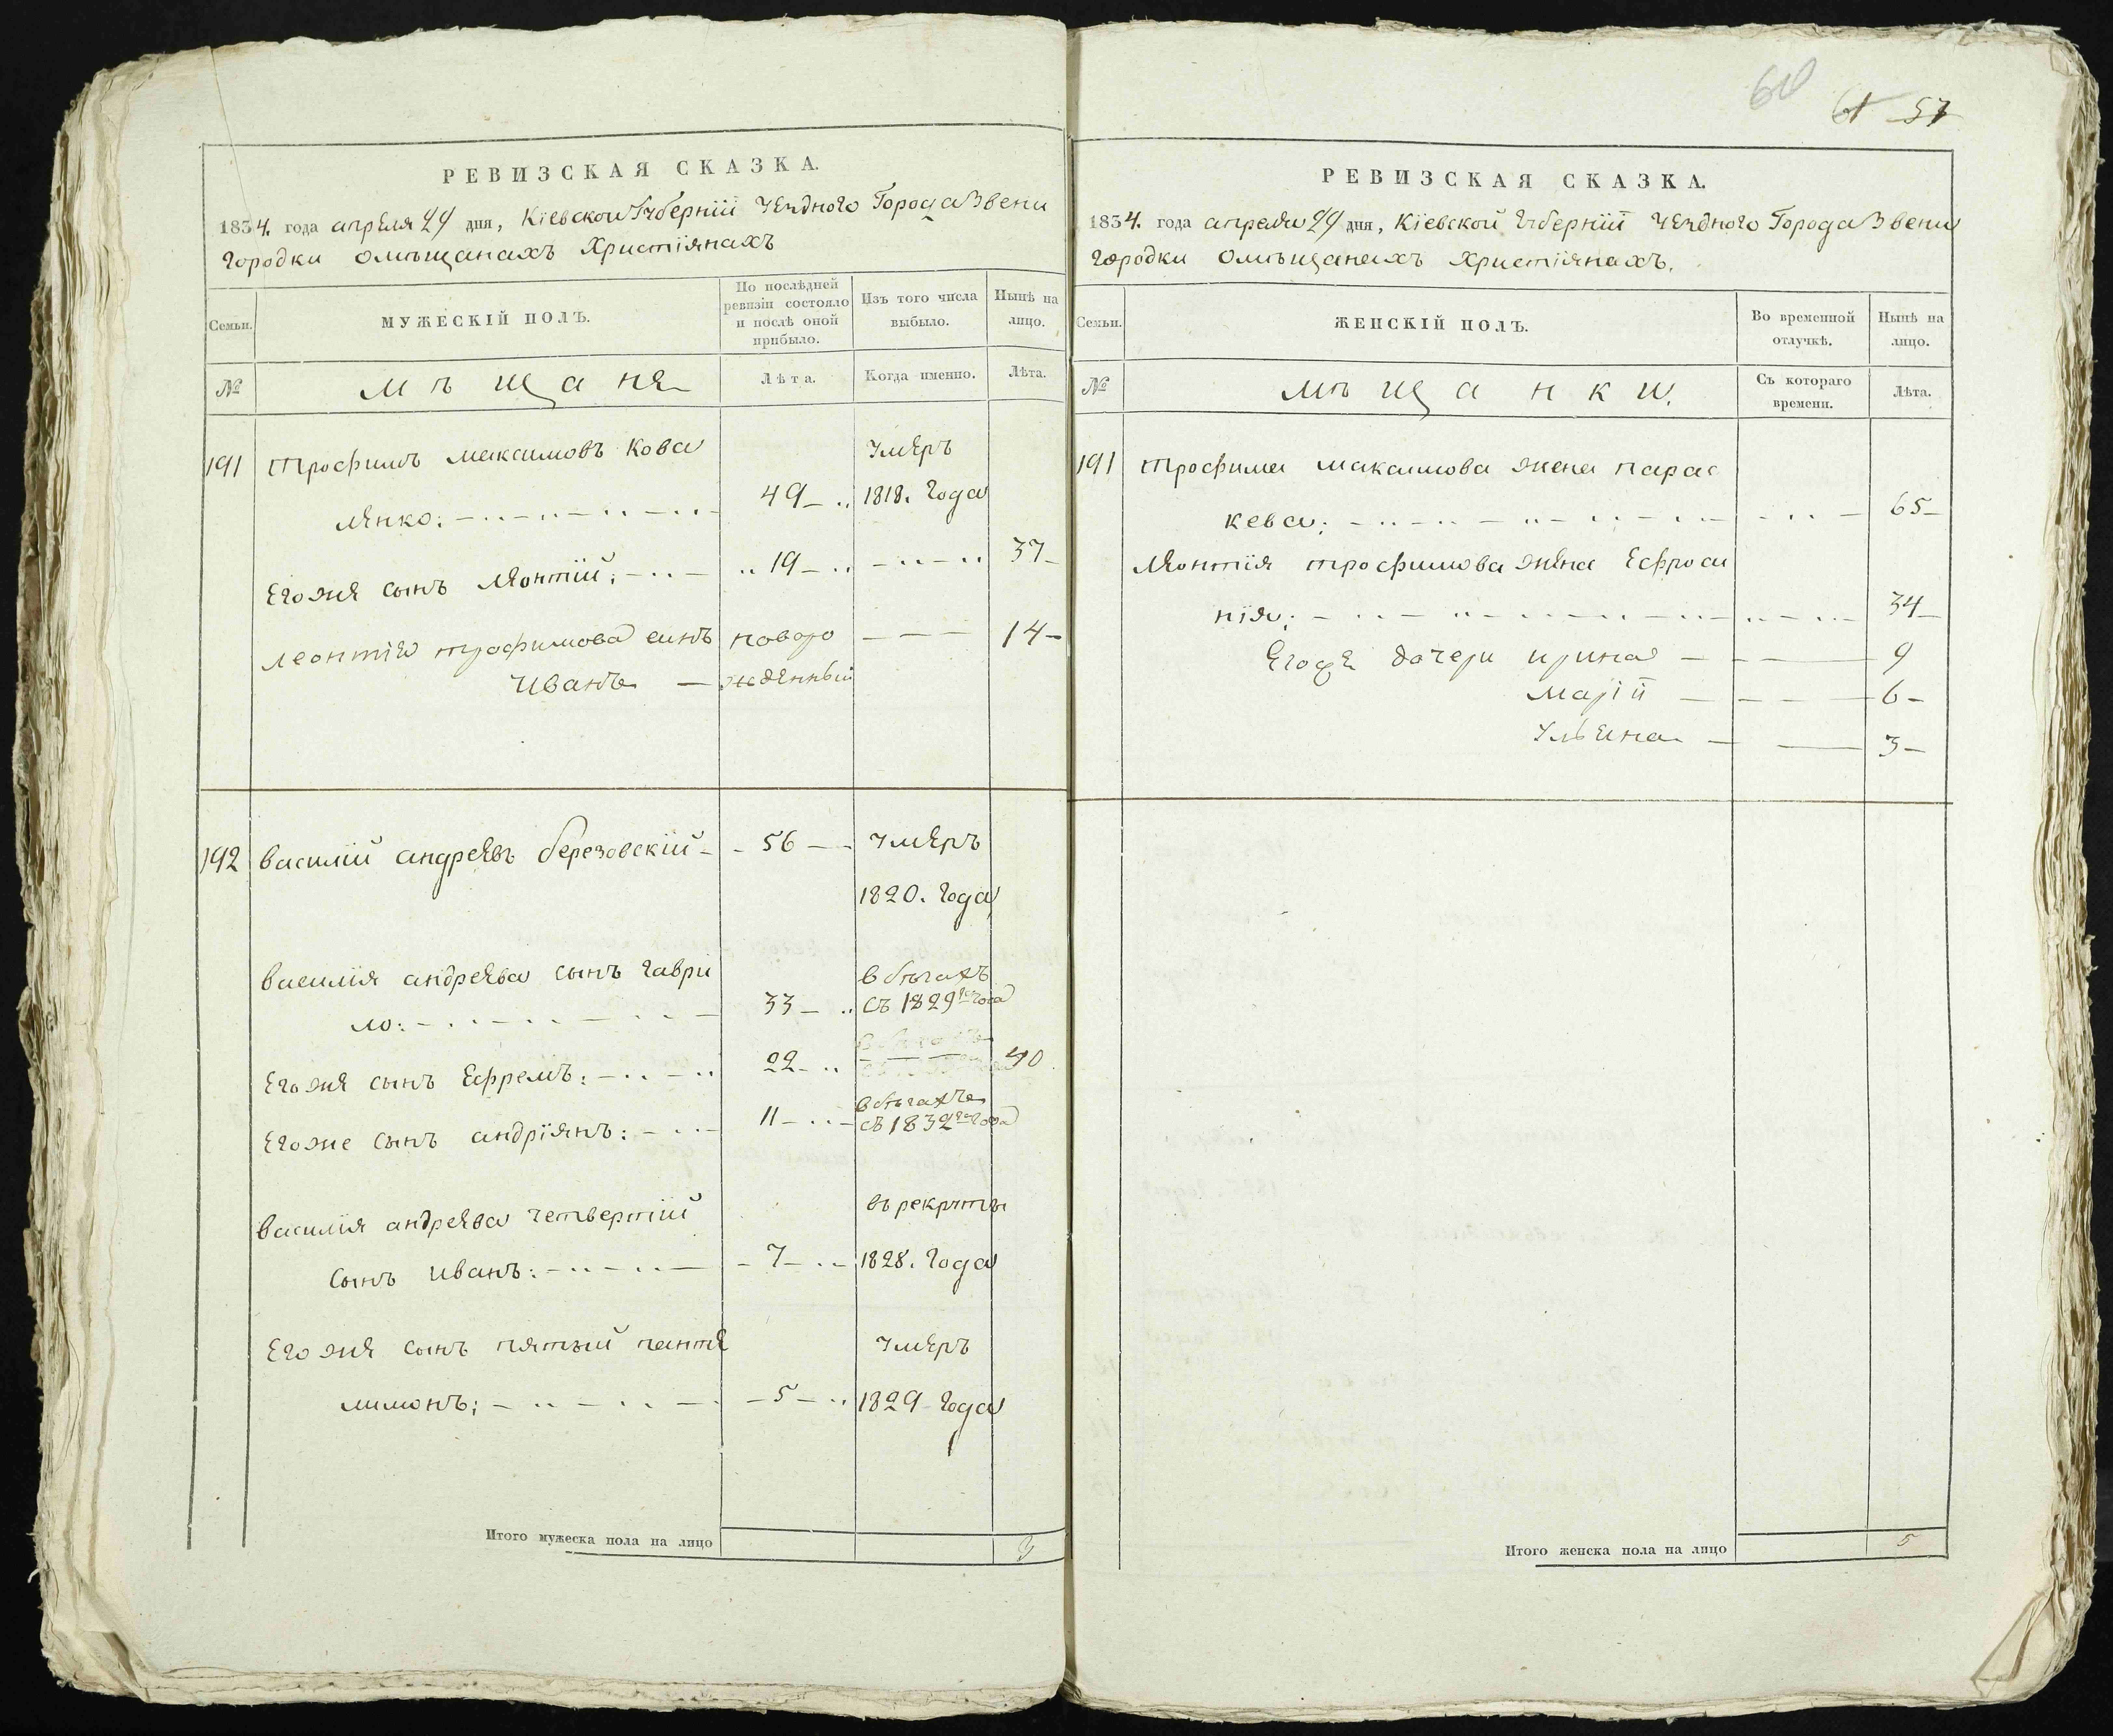 60
61 57
РЕВИЗСКАЯ СКАЗКА.
1834. года апреля 24 дня, Кіевской Губерніи Уезднаго Города Звени
городки омѣщанахъ Христіянахъ
Семьи.
МУЖЕСКІЙ ПОЛЪ.
По послѣдней ревизіи состояло и послѣ оной прибыло.
Изъ того числа выбыло.
Нынѣ на лицо.
№
мѣщане
Лѣта.
Когда именно.
Лѣта.
191 Трофимъ максимовъ Кова
ленко: 49 умеръ 1818. года
Егоже сынъ Леонтій: 19 37
леонтія трофимова синъ новоро 14
Иванъ жденный
192 василій андреевъ березовскій 56 умеръ
1820. года
василія андреева сынъ гаври
ло: 33 в бѣгахъ съ 1829го года
Егоже сынъ Ефремъ: 22 40
Егоже сынъ андріянъ: 11 в бѣгахъ съ 1832го года
василія андреева четвертій въ рекруты
сынъ иванъ: 7 1828. года
Егоже сынъ пятый панте умеръ
лимонъ: 5 1829 года
Итого мужеска пола на лицо 3
РЕВИЗСКАЯ СКАЗКА.
1834. года апреля 24 дня, Кіевской Губерніи Уезднаго Города Звени
городки омѣщанахъ Христіянахъ.
Семьи.
ЖЕНСКІЙ ПОЛЪ.
Во временной отлучкѣ.
Нынѣ на лицо.
№
мѣщанки.
Съ котораго времени.
Лѣта.
191 Трофима максимова жена парас
кева: 65
Леонтія трофимова жена Ефроси
нія: 34
Егоже дочери ирина 9
Маріи 6
Ульяна 3
Итого женска пола на лицо 5